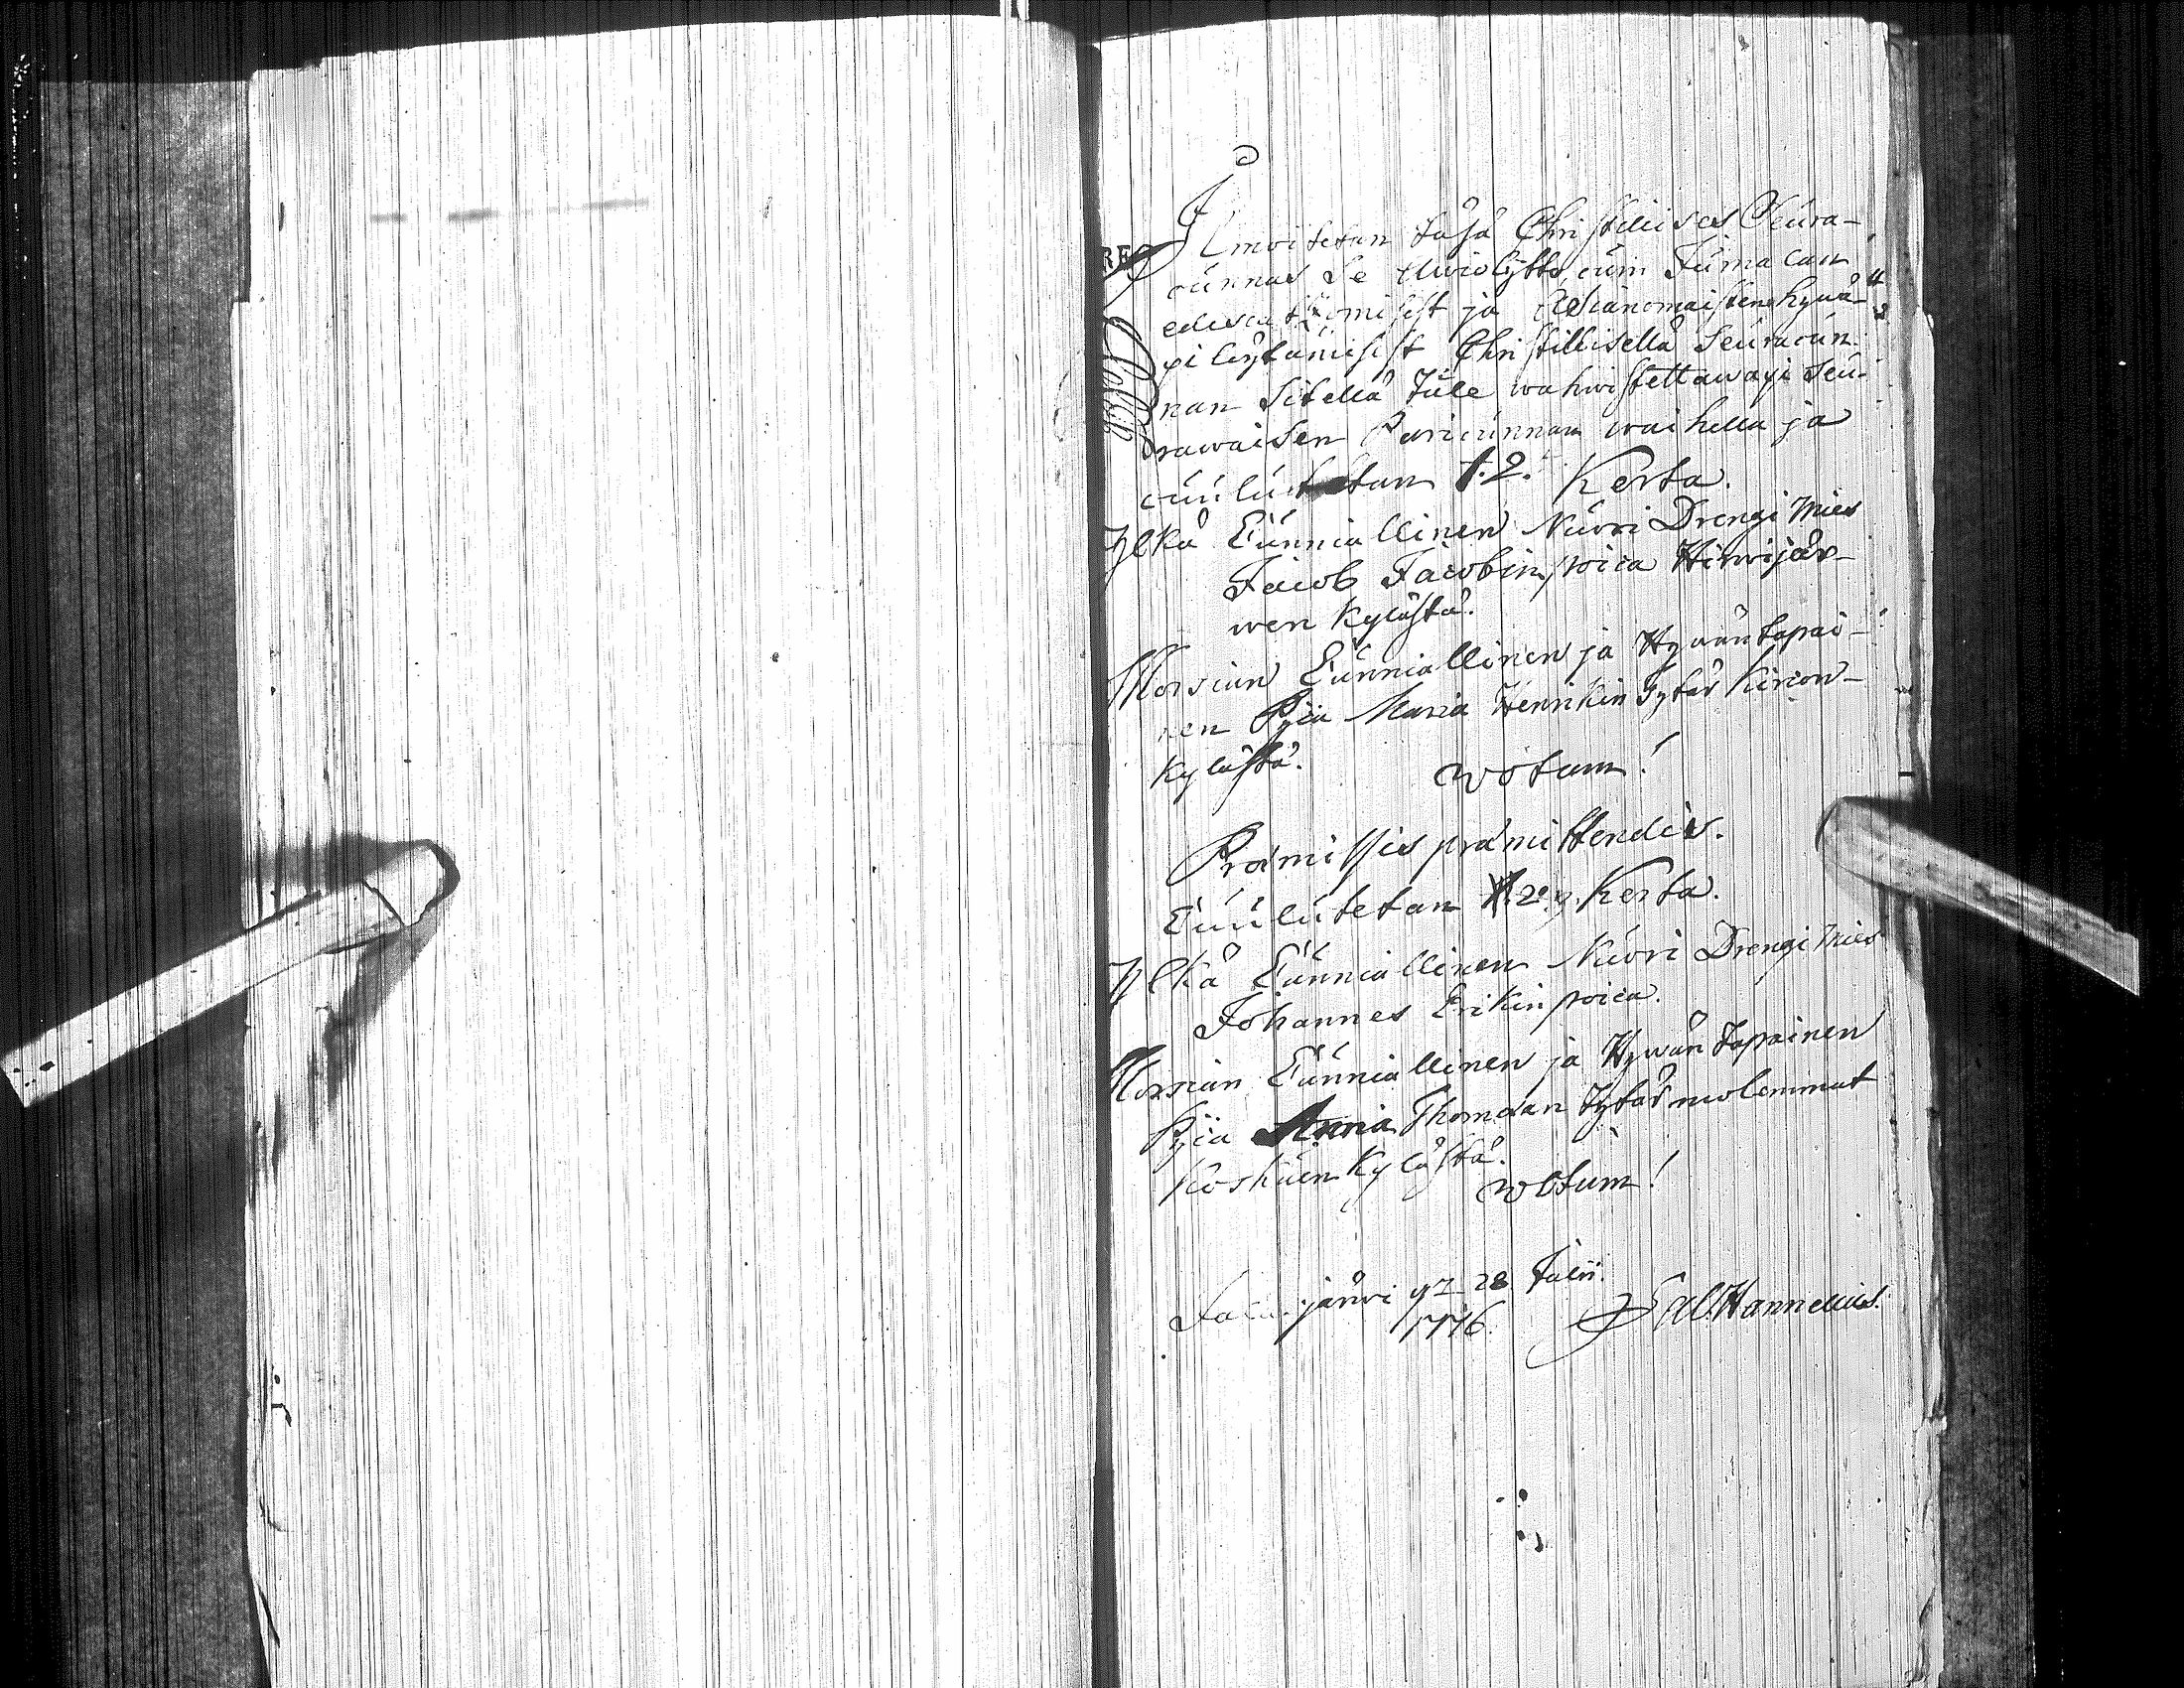 Ilmoitetan täsä Christilises Seura-
cunnas se Awiolijtto, cuin Jumalan
edescatzomisest ja Asianomaisten hywä-
xi löytämisest Christillisellä Seuracun-
nan Sitellä tule wahwistettawaxi Seu-
rawaisen Paricunnan waihella ja
cuulutetan 1. 2. Kerta.
Ylkä Cunniallinen Nuori Drengi Mies
Jacob Jacobin poica Hirwijär-
wen Kylästä.
Morsian Cunniallinen ja Hywäntapai-
nen Pijca Maria Henrikin Tytär
Kylästä.
wotum!
Præmissis præmittendis.
Cuulutetan 2. 3. Kerta.
Ylkä Cunniallinen Nuori Drengi Mies
Johannes Erikin poica.
Morsian Cunniallinen ja Hywän tapainen
Pijca Anna Thomasan Tytär molemmat
Koskuen Kylästä.
wotum!
järwi 28 Julii.
1776. Hannelius.